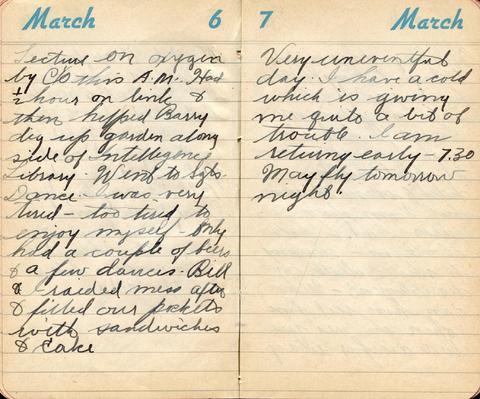 March 6
Lecture on oxygen
by C.O. this A.M. Had
½ hour on link &
then helped Barry
dig up garden along
side of Intelligence
Library. Went to Sgts.
Dance. I was very
tired - too tired to
enjoy myself. Only
had a couple of beers
& a few dances. Bill
& I raided mess after
& filled our pockets
with sandwiches
& cake
7 March
Very uneventful
day. I have a cold
which is giving
me quite a bit of
trouble. I am
retiring early - 7.30
May fly tomorrow
night.